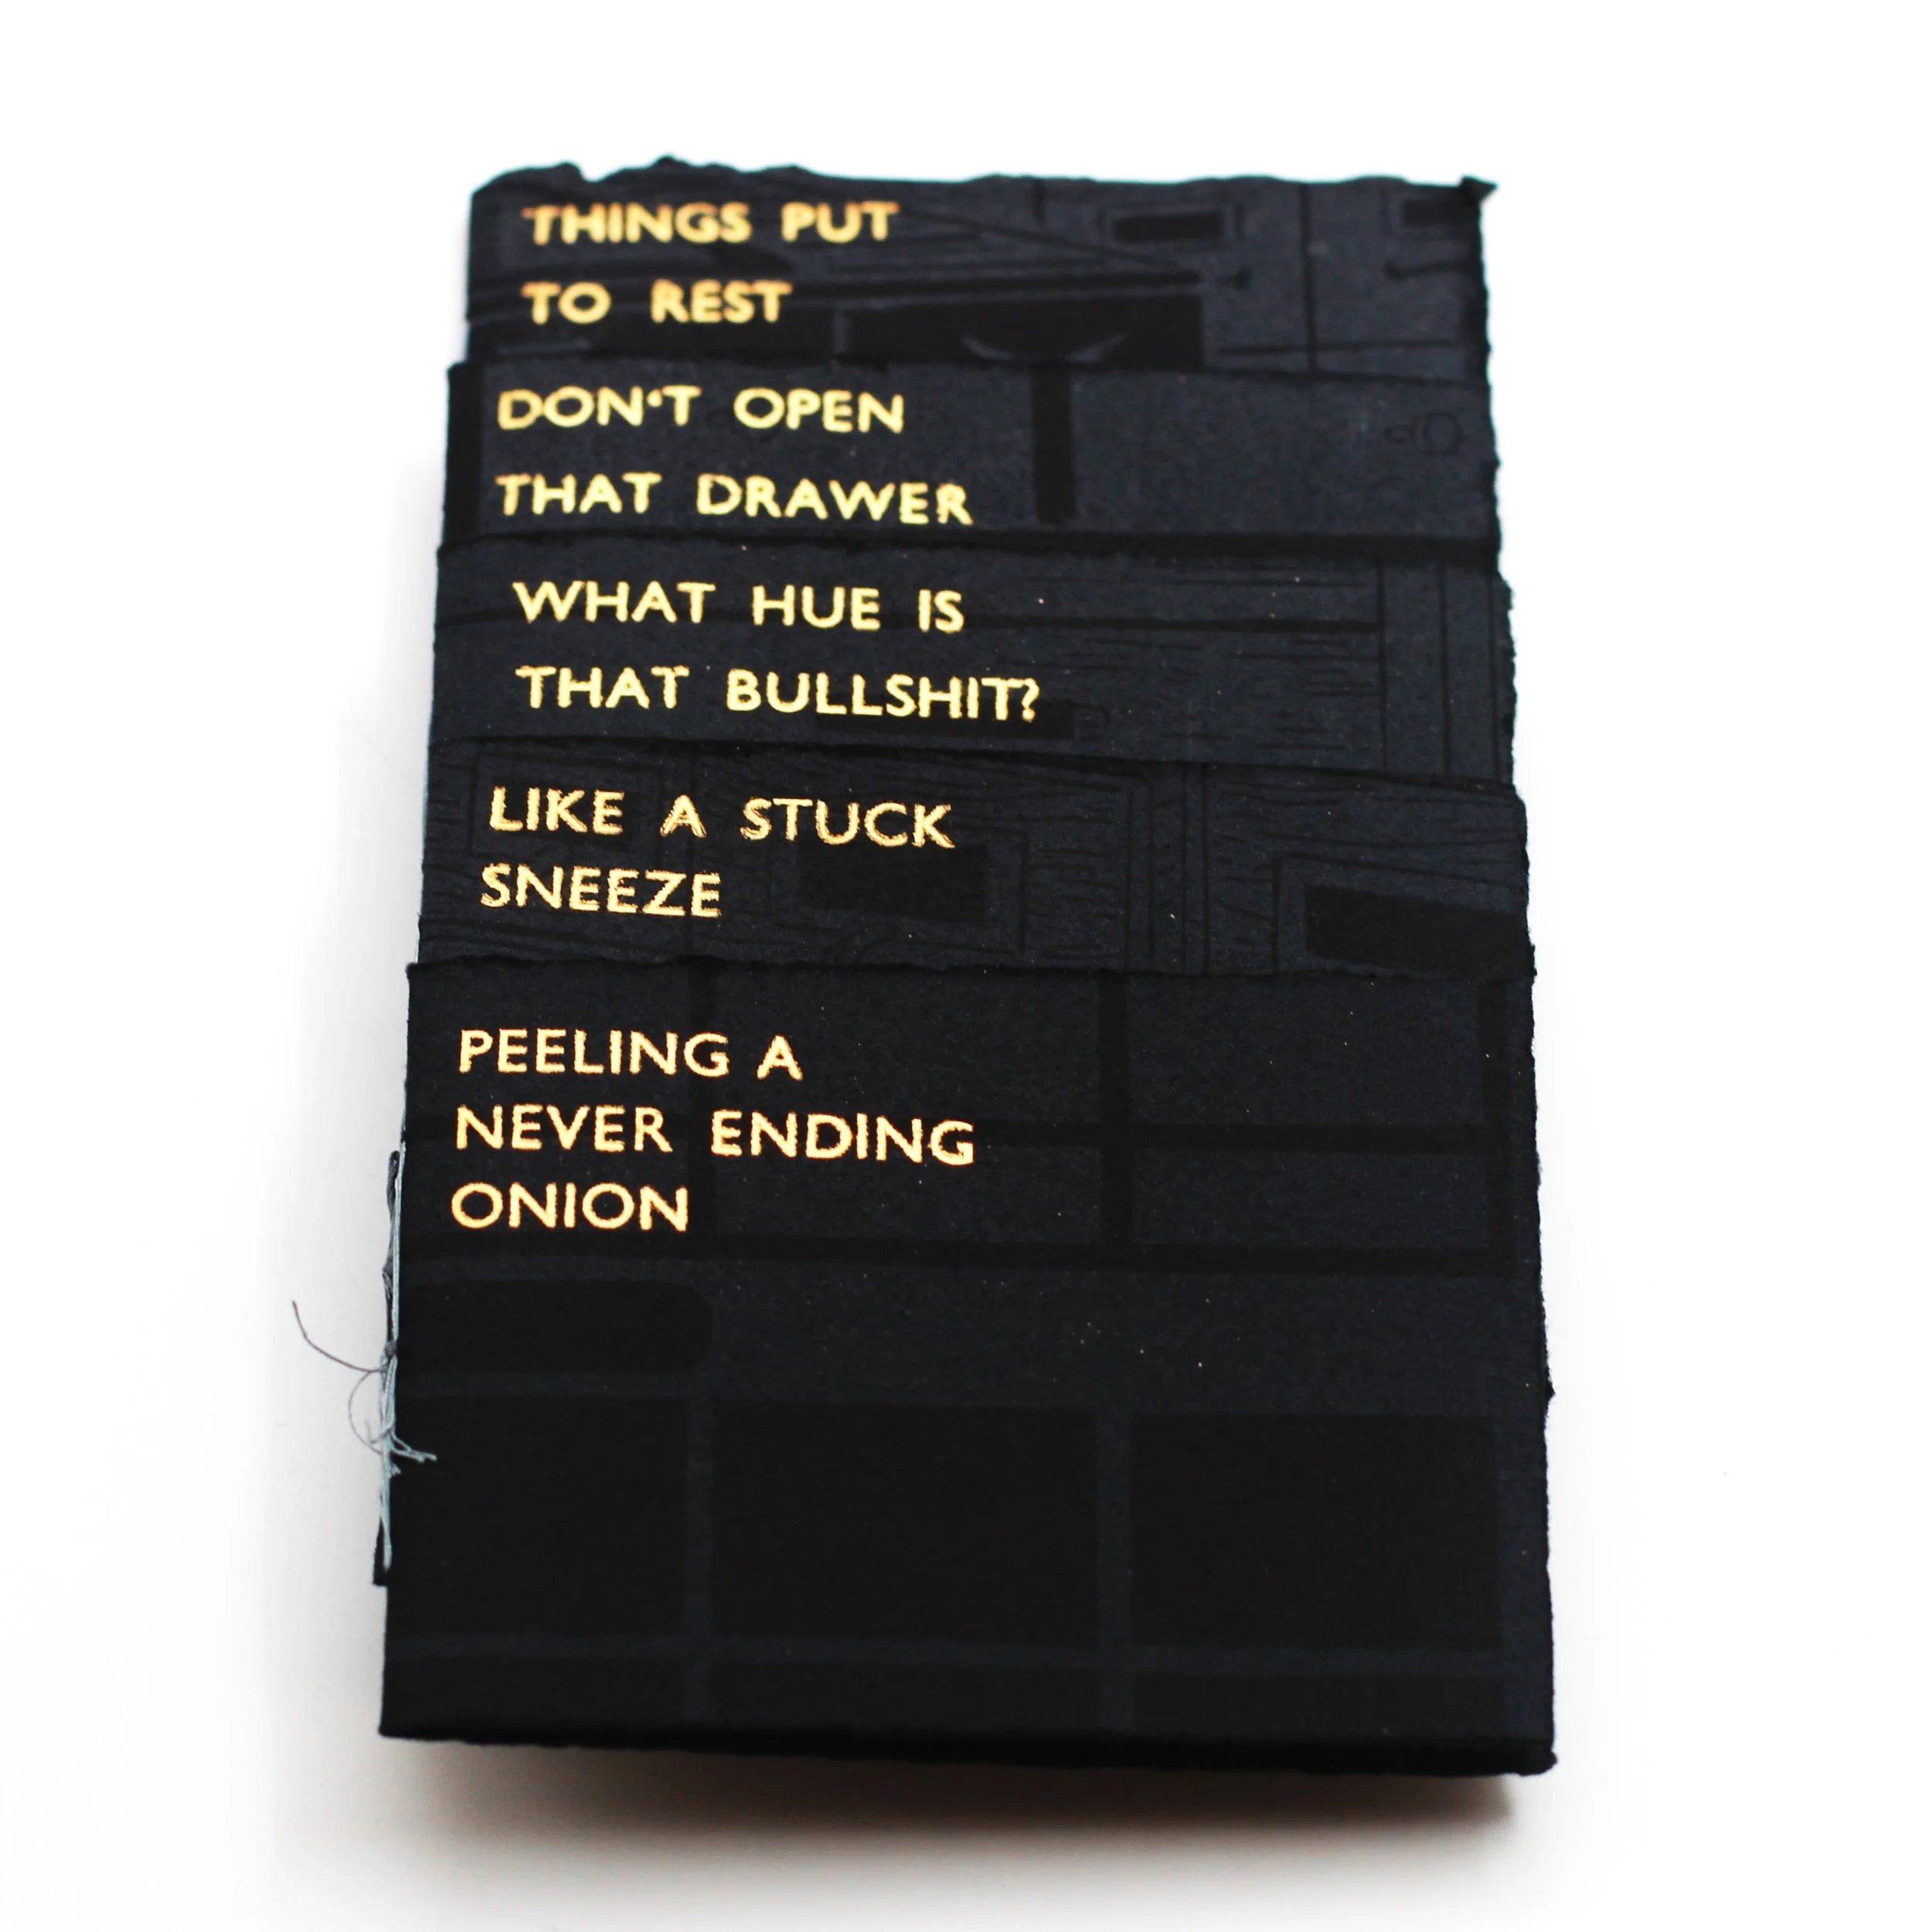 THINGS PUT
TO REST
DON'T OPEN
THAT DRAWER
WHAT HUE IS
THAT BULLSHIT?
LIKE A STUCK
SNEEZE
PEELING A
NEVER ENDING
ONION